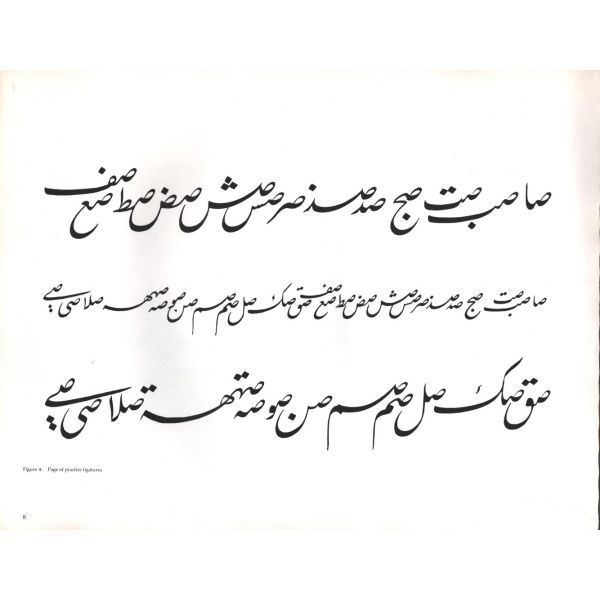 صا صب صت صج صد صر صس صش صض صط صع صف
صا صب صت صج صد صر صس صش صض صط صع صف صق صک صل صم صم صن صو صه صهه صلا صی صے
صق صک صل صم صم صن صو صه صهه صلا صی صے
Figure 4: Page of practice ligatures
8